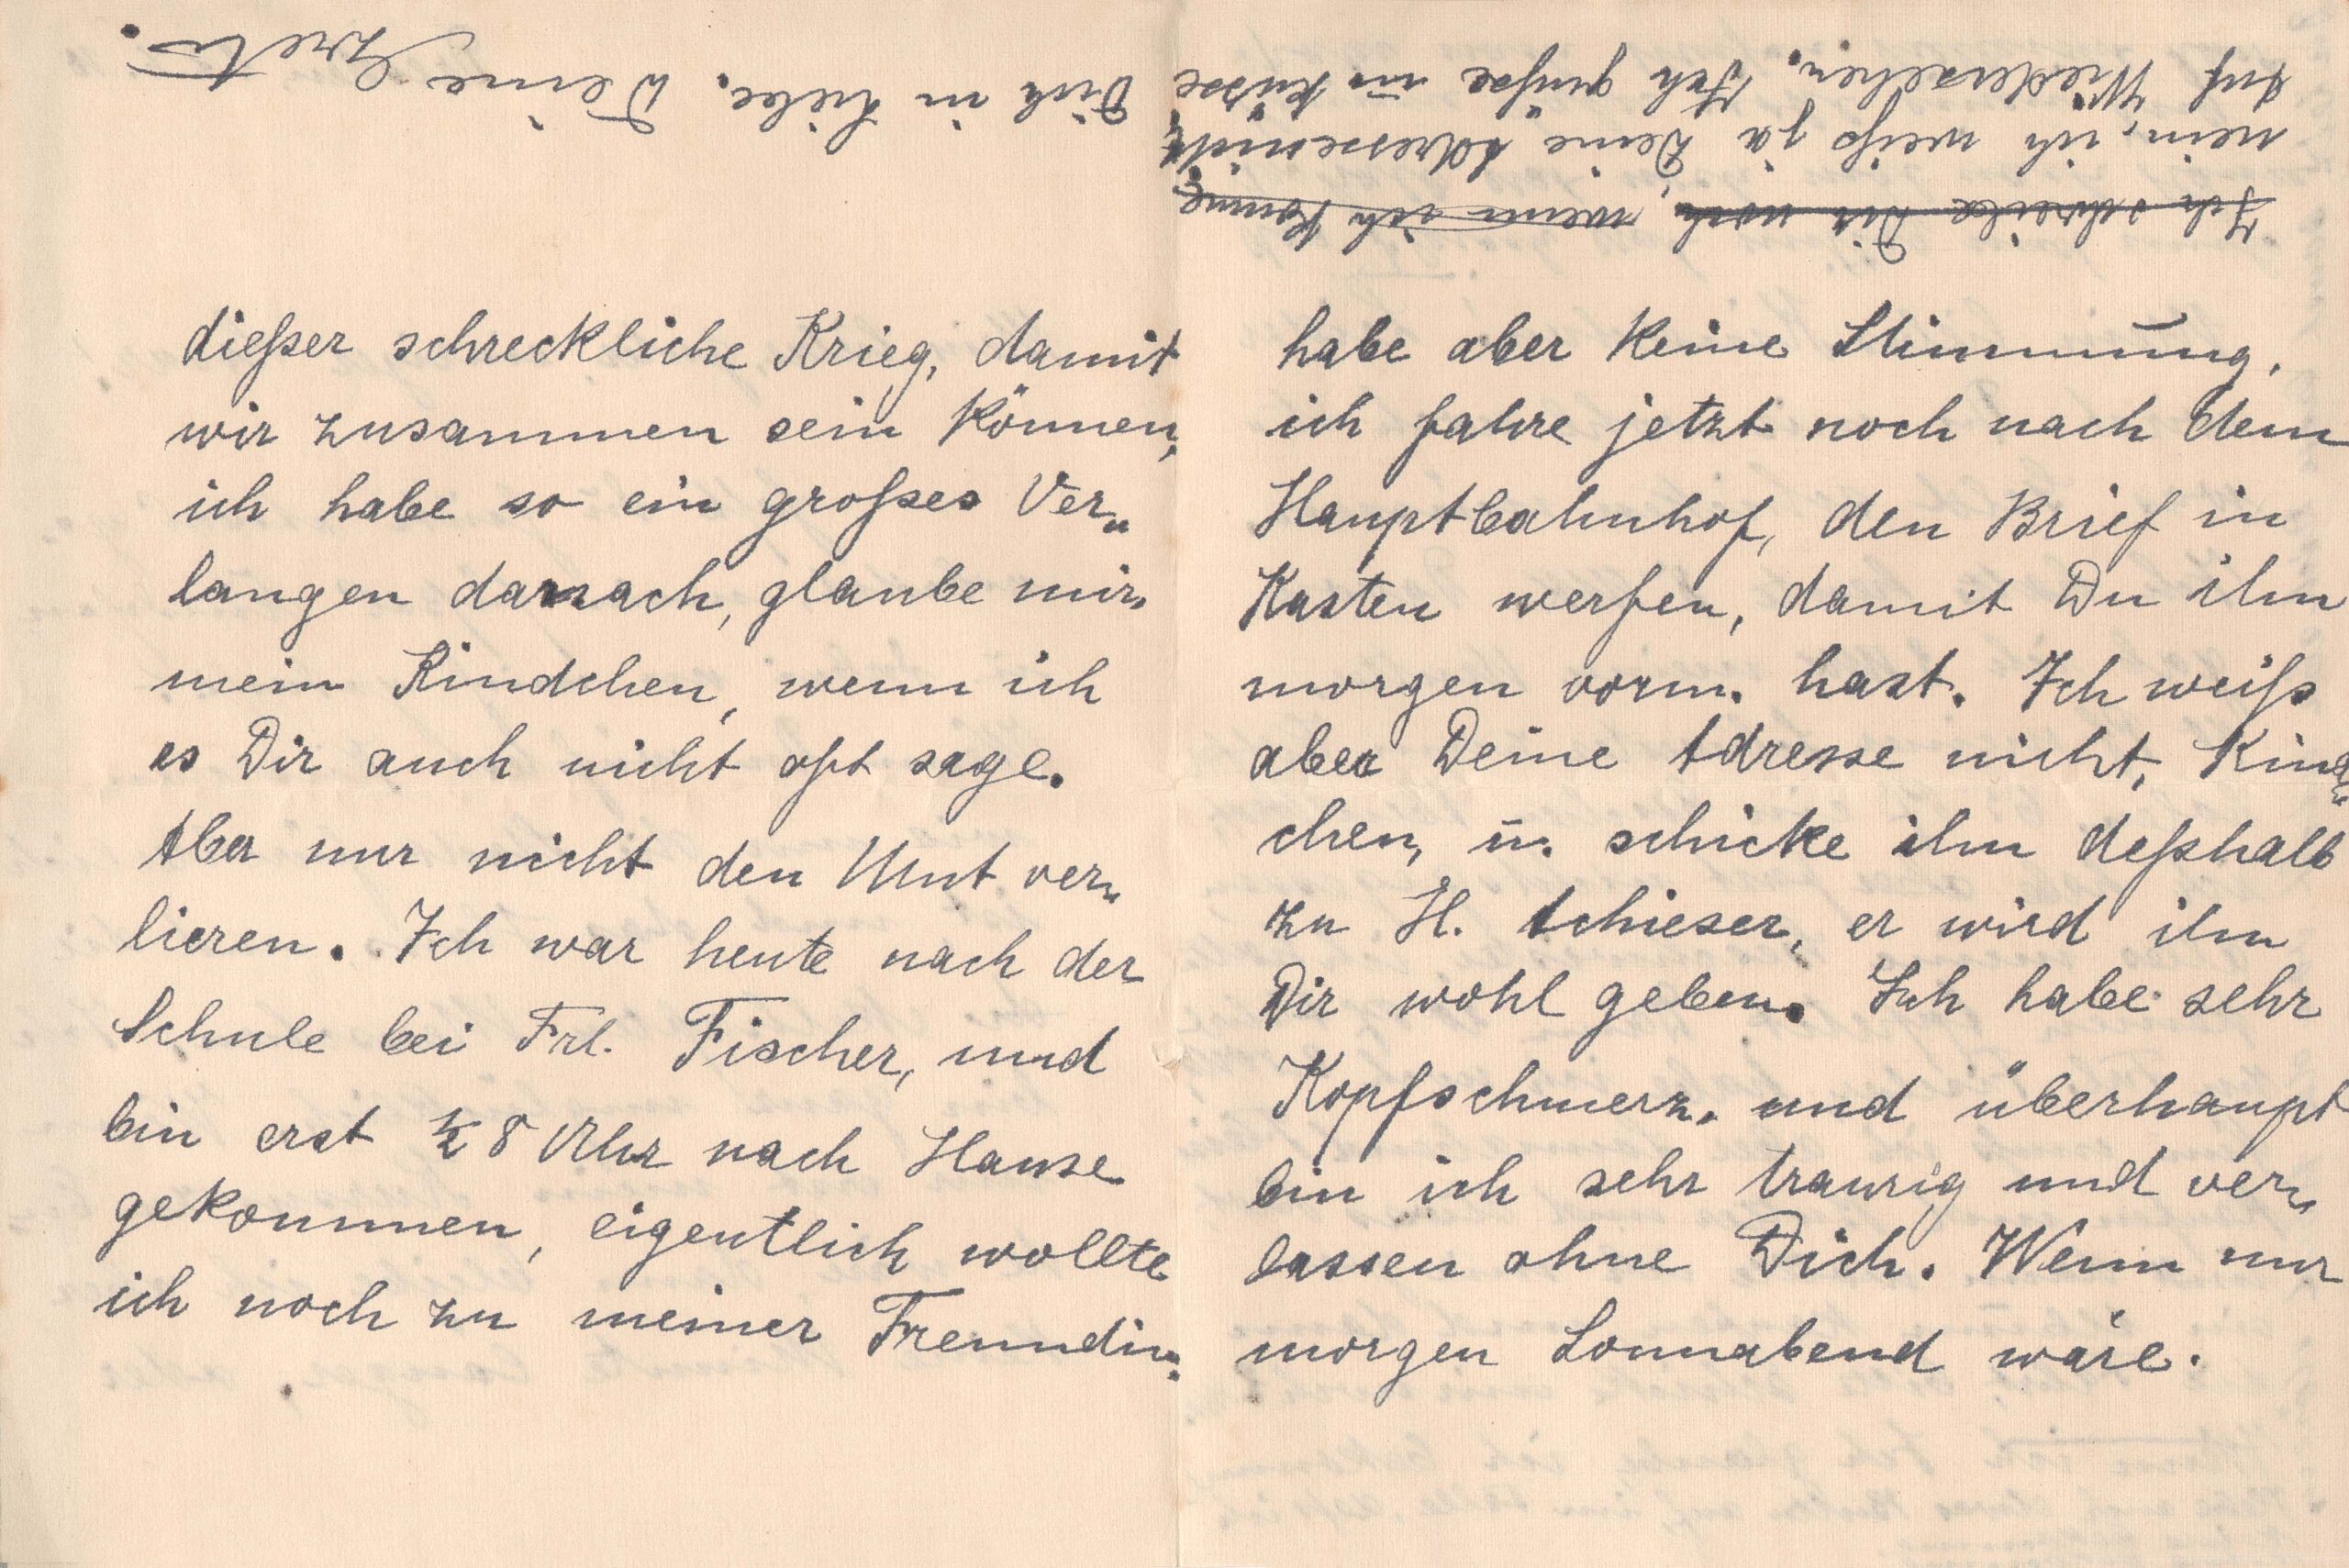 dießer schreckliche Krieg, damit
wir zusammen sein können,
ich habe so ein großes Ver„
langen darnach, glaube mir,
mein Kindchen, wenn ich
es Dir auch nicht oft sage.
Aber nur nicht den Mut ver„
lieren. Ich war heute nach der
Schule bei Frl. Fischer, und
bin erst ½ 8 Uhr nach Hause
gekommen, eigentlich wollte
ich noch zu meiner Freundin.
habe aber keine Stimmung.
ich fahre jetzt noch nach dem
Hauptbahnhof, den Brief in
Kasten werfen, damit Du ihn
morgen vorm. hast. Ich weiß
aber Deine Adresse nicht, Kind„
chen, u. schicke ihn deßhalb
zu H. Schieser, er wird ihn
Dir wohl geben. Ich habe sehr
Kopfschmerz. und überhaupt
bin ich sehr traurig und ver„
lassen ohne Dich. Wenn nur
morgen Sonnabend wäre.
Ich schreibe Dir noch, wenn ich komme
nein, ich weiß ja Deine Adresse nicht,
Auf Wiedersehen. Ich grüße u. küsse
Dich in Liebe. Deine Gretl.